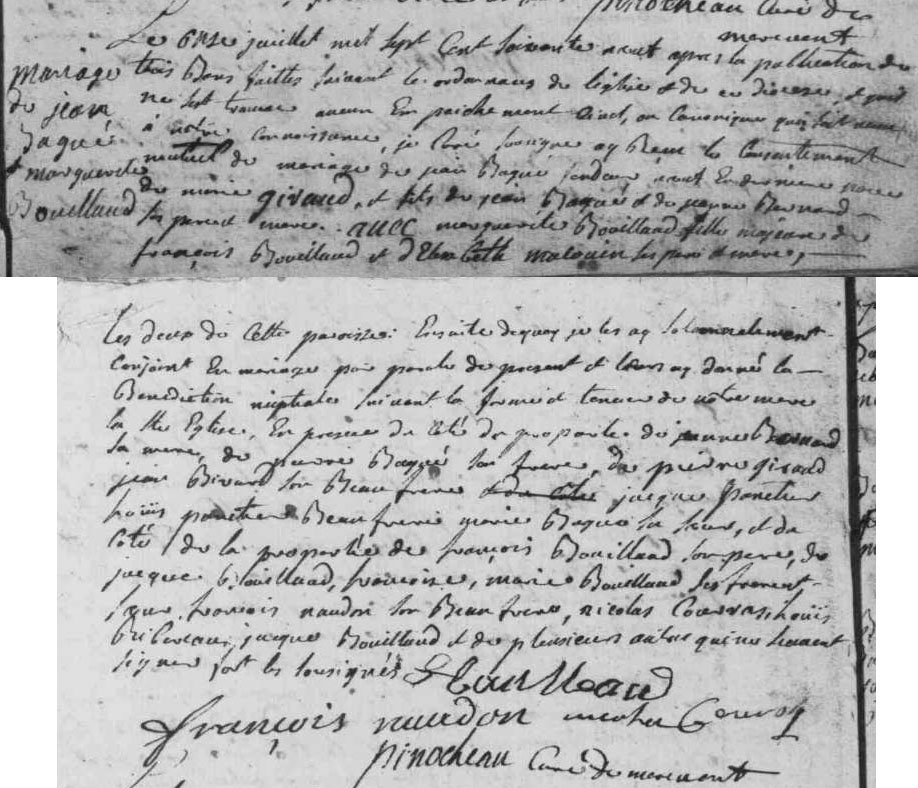 pinocheau Curé de
merevent
Le onse juillet mil sept Cent soixante neuf apres la publication de
mariage
de jean
Baqué
et marguerite
Bouillaud
trois Bans faittes suivant les ordonnances de l'église et de ce diocese, et quil
ne sest trouvé aucun Empaichement Civil, ou Canonique quoy soit venu
à notre connaissance, je Curé soussigné ay Reçu le Consentement
mutuel de mariage de jean Baqué veuf En derniere noce
de marie giraud, et fils de jean Baqué et de jeanne Bernard
ses pere et mere. avec marguerite Bouillaud fille majeure de
françois Bouillaud et d'Elizabeth malouin ses pere et mere,
les deux de Cette paroisse: Ensuite de quoy je les ay solannelement
Conjoint En mariage par parole de present et leurs ay donné la
Benediction nuptiale suivant la forme et teneur de notre mere
la Ste Eglise, En presence du Côté du proparlé de jeanne Bernard
sa mere, de pierre Baqué son frere, de pierre giraud
jean Birard son Beau frere jacque
loüis Beaufrere marie Baqué sa sœur, et du
Côté de la proparlée de françois Bouillaud son pere, de
jacque Bouillaud, françoise, marie Bouillaud ses frere et
sœur, françois naudon son Beau frere, nicolas loüis
jacque Bouillaud et de plusieurs autres qui ne scavent
signer fort les soussignés Bouilleaud
françois naudon
pinocheau Curé de merevent